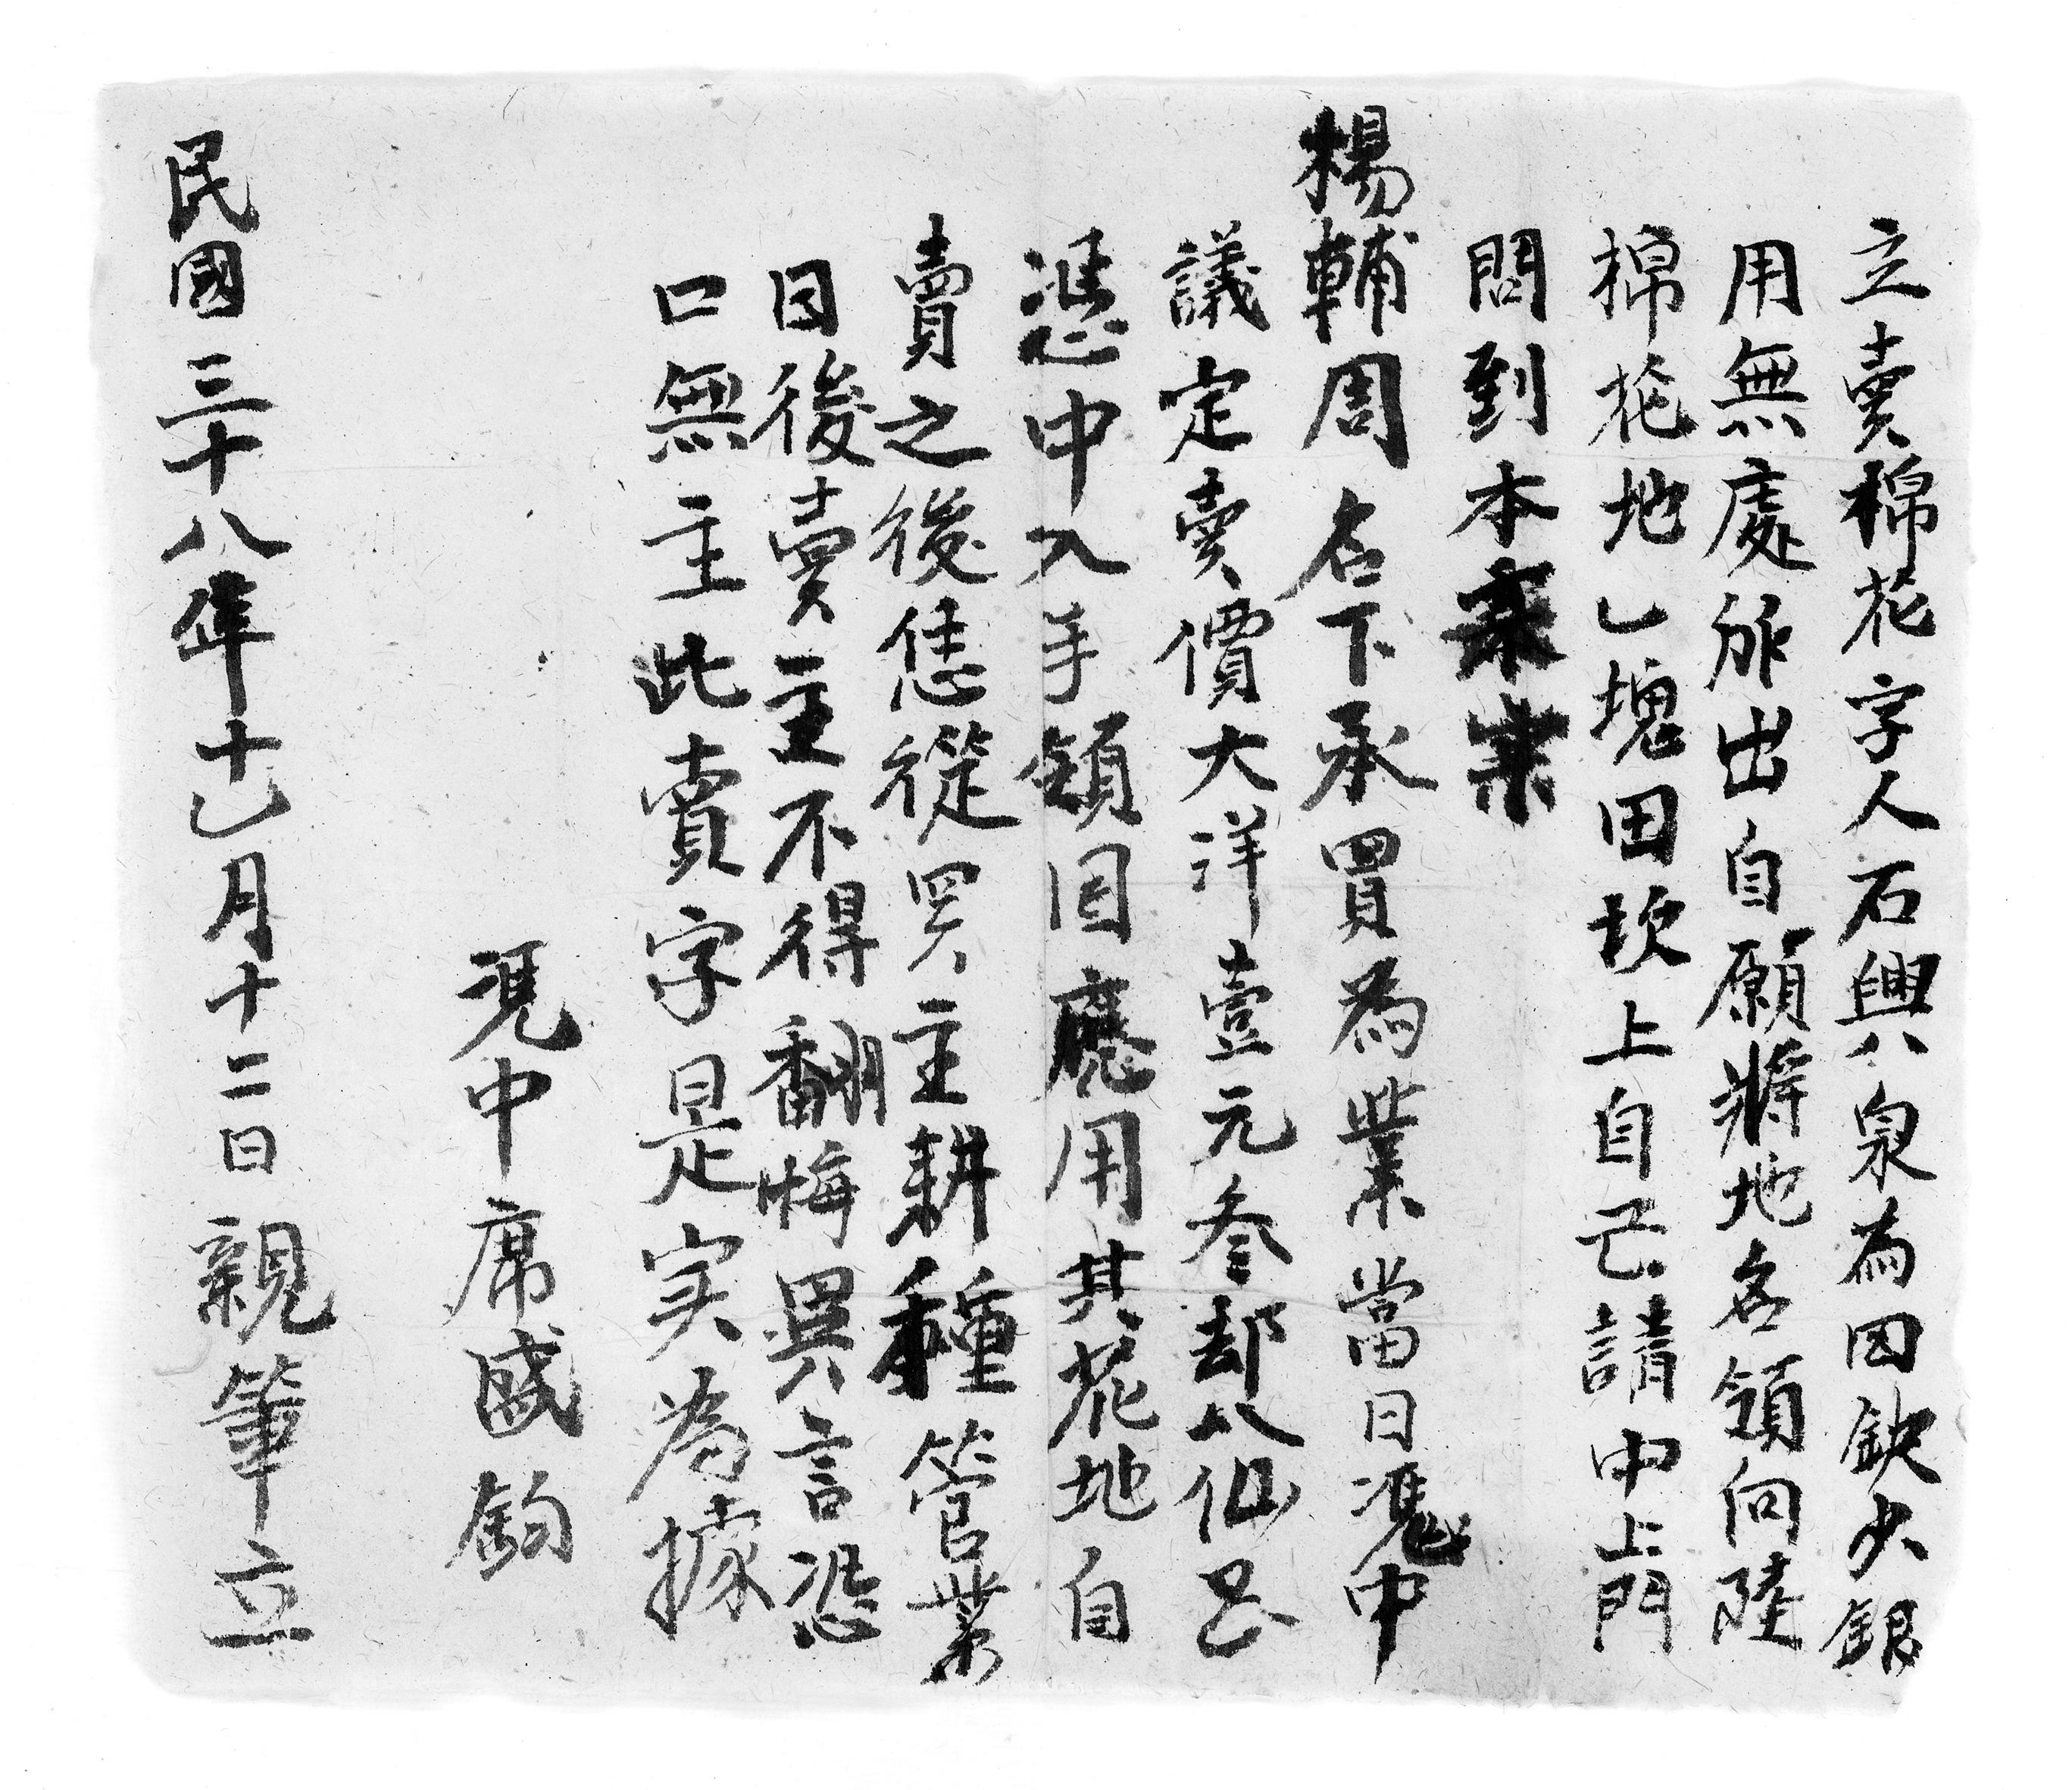 立賣棉花字人石興泉為因缺少銀
用無處所出自願將地名領向陸
棉花地乚塊田坎上自己請中上門
問到本寨
楊輔周名下承買為業當日憑中
議定賣價大洋壹元叁
憑中入手領囬應用其花地自
賣之後恁從買主耕種管業
日後賣主不得翻悔異言恐
口無主此賣字是实為據
憑中席盛鈞
民國三十八年十乚月十二日親筆立